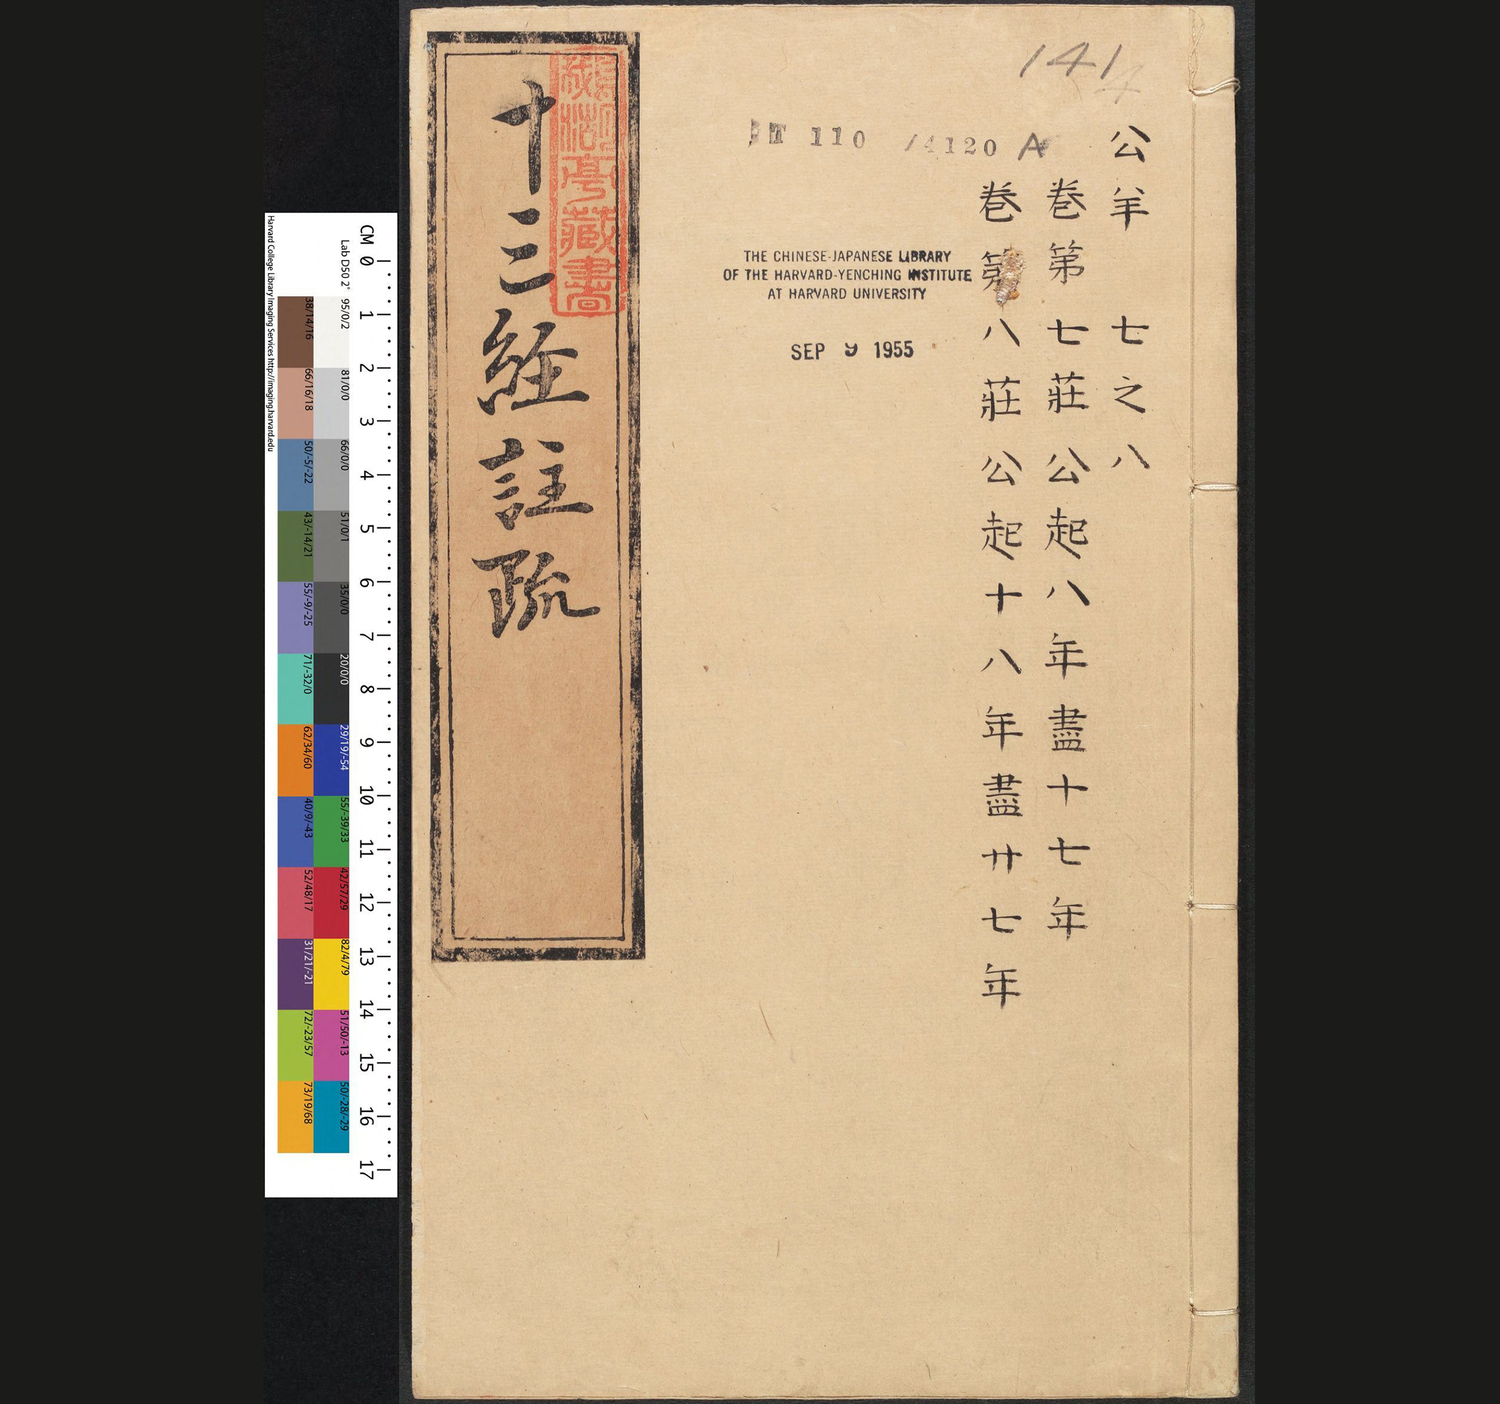 141
公羊 七之八
卷第七莊公起八年盡十七年
卷第八莊公起十八年盡廿七年
T 110 /4120 A
THE CHINESE-JAPANESE LIBRARY
OF THE HARVARD-YENCHING INSTITUTE
AT HARVARD UNIVERSITY
SEP 9 1955
十三經註疏
亭藏書
CM 0 1 2 3 4 5 6 7 8 9 10 11 12 13 14 15 16 17
Lab D50 2° 95/0/2 81/0/0 66/0/0 51/0/1 35/0/0 20/0/0 29/19/-54 55/-39/33 42/57/29 82/4/79 51/50/-13 50/-28/-29
38/14/16 66/16/18 50/-5/-22 43/-14/21 55/-9/-25 71/-32/0 62/34/60 40/9/-43 52/48/17 31/21/-21 72/-23/57 73/19/68
Harvard College Library Imaging Services http://imaging.harvard.edu